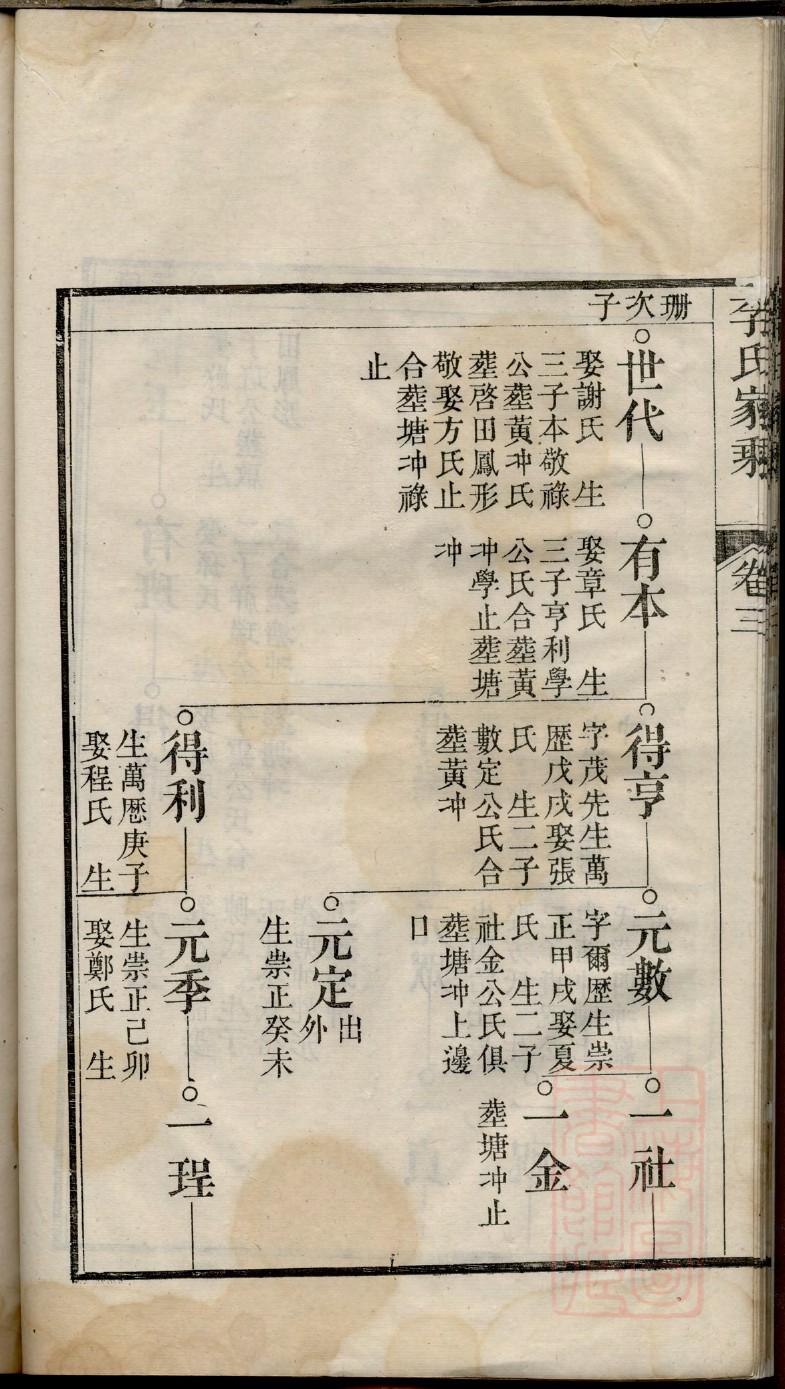 李氏家乘
卷三
珊次子
世代
娶謝氏　生
三子本敬祿
公塟黃冲氏
塟啓田鳳形
敬娶方氏止
合塟塘冲祿
止
有本
娶章氏　生
三子亨利學
公氏合塟黃
冲學止塟塘
冲
得亨
字茂先生萬
歷戊戌娶張
氏　生二子
數定公氏合
塟黃冲
元數
字爾歷生崇
正甲戌娶夏
氏　生二子
社金公氏俱
塟塘冲上邊
口
一社
一金
塟塘冲止
元定
出
外
生崇正癸未
得利
生萬厯庚子
娶程氏　生
元季
生崇正己卯
娶鄭氏　生
一珵